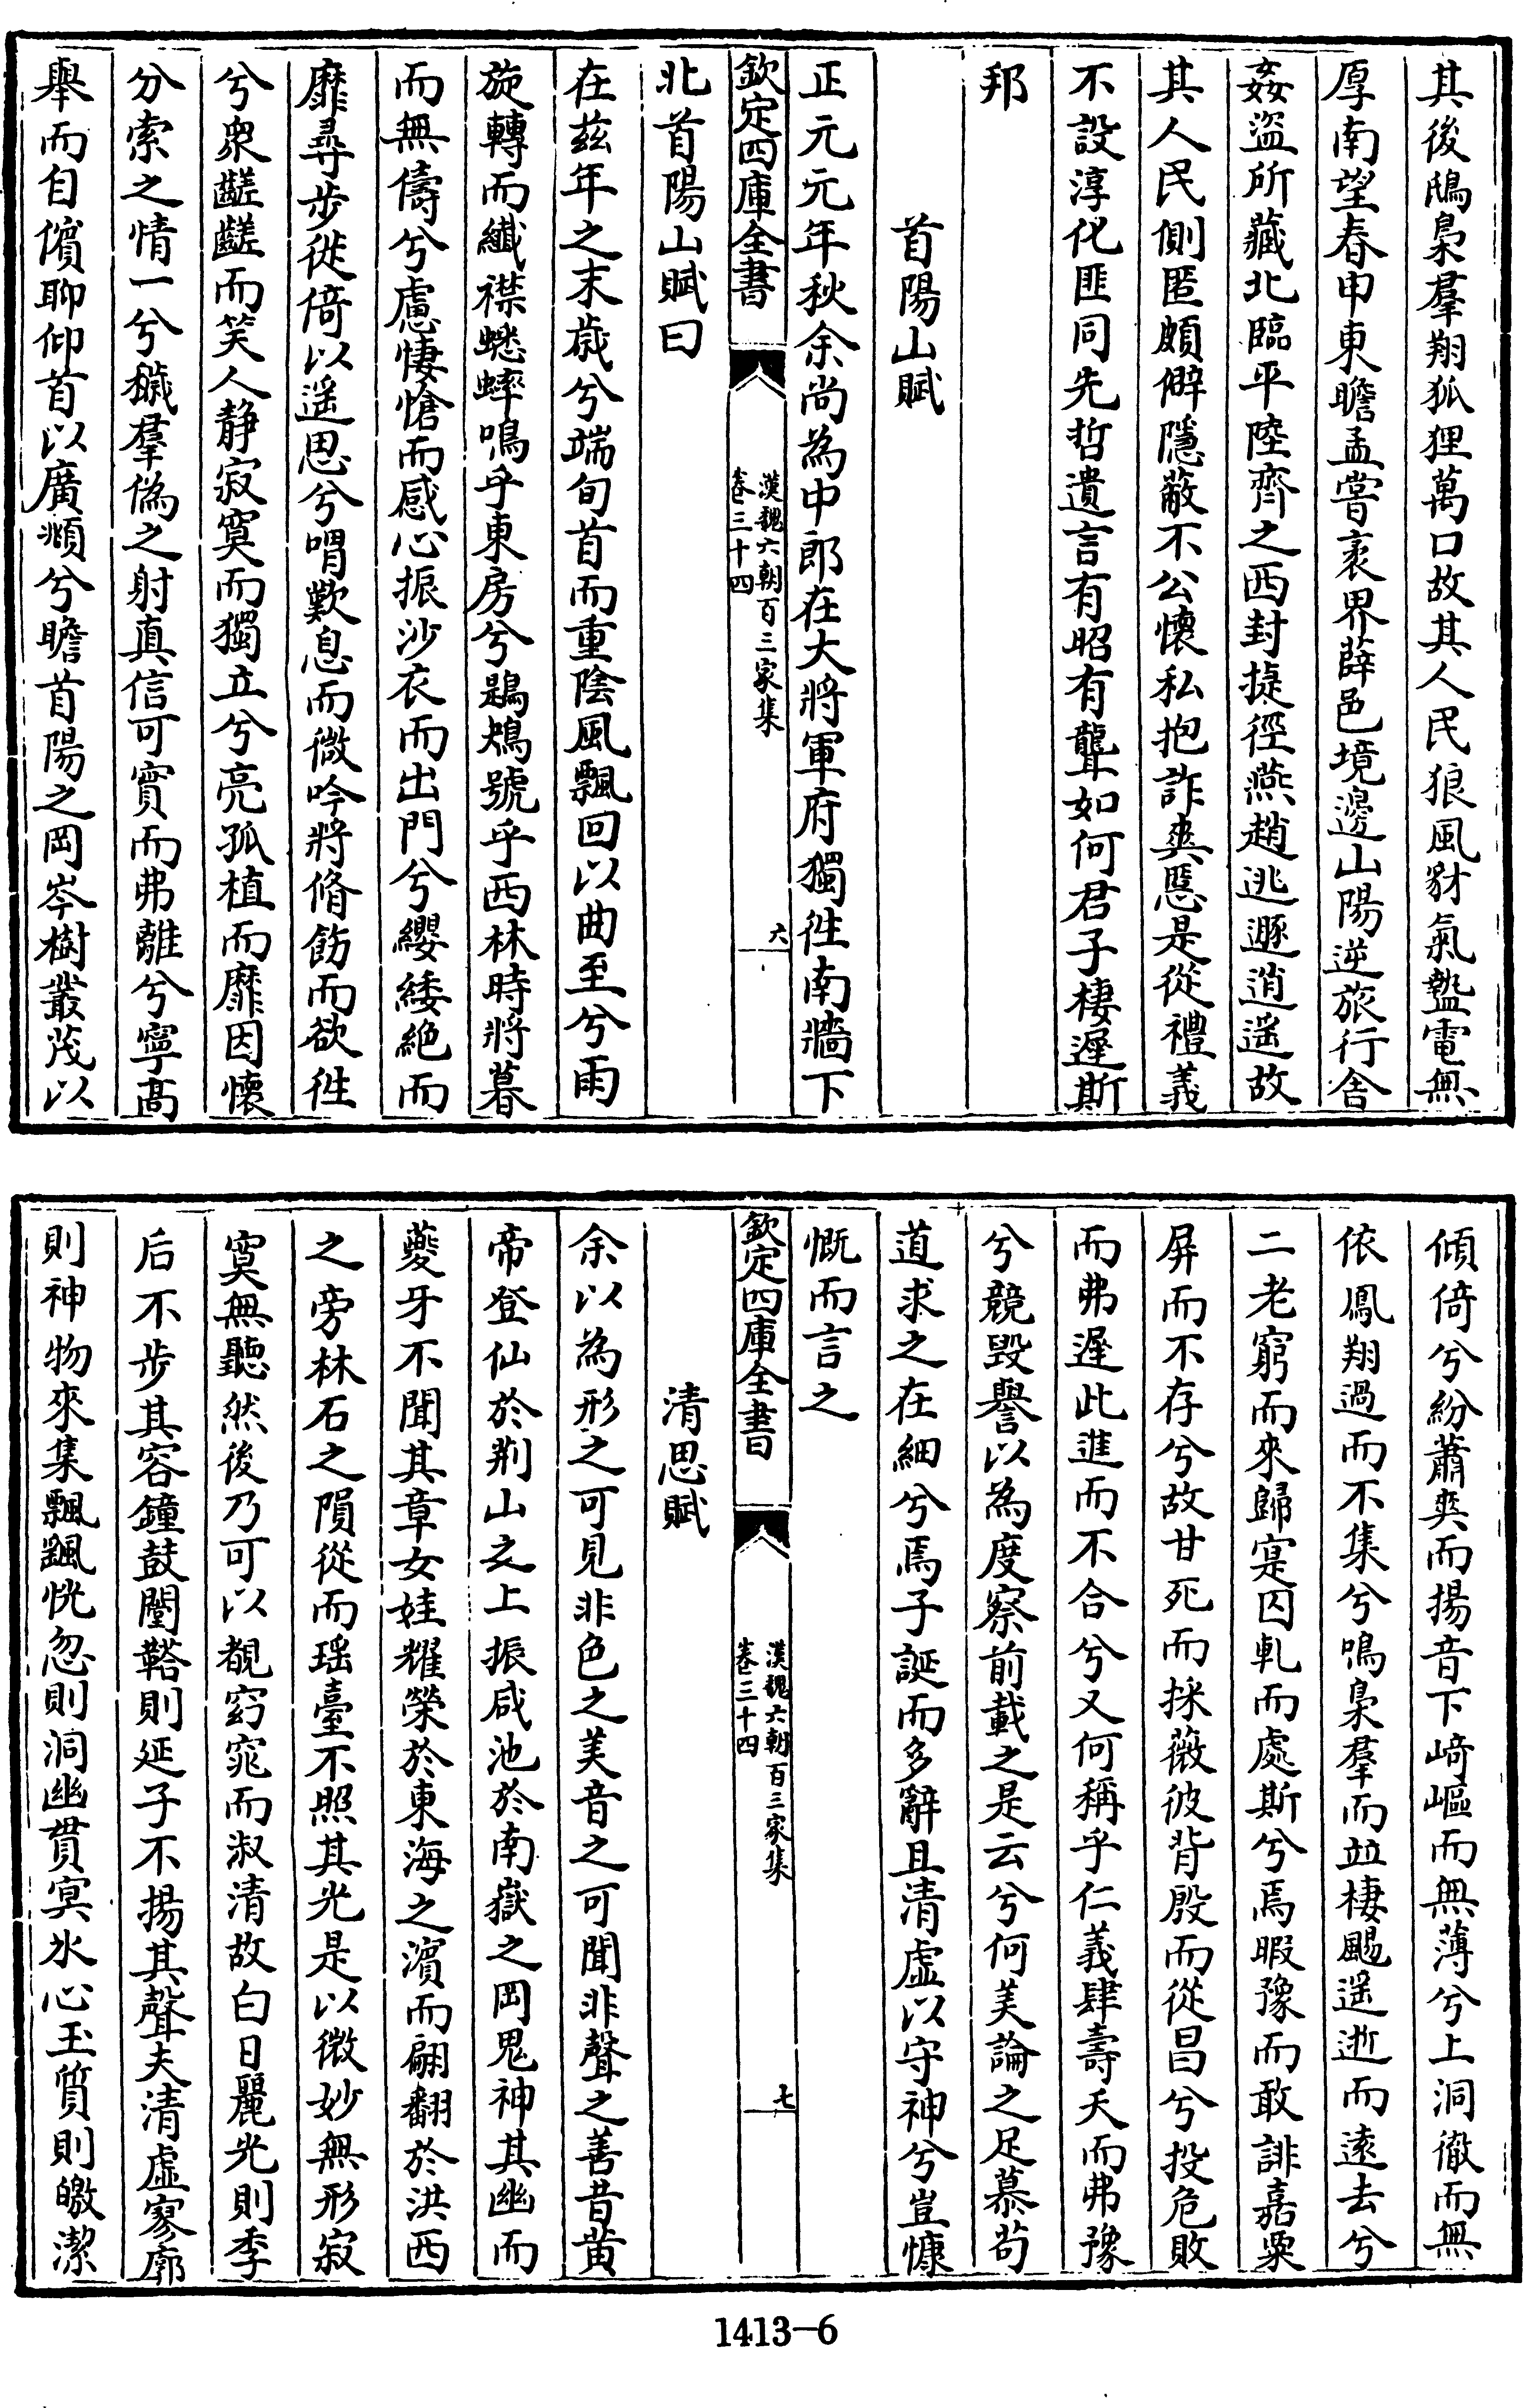 其後鴟梟羣翔狐狸萬口故其人民狼風豺氣盭電無
厚南望春申東瞻孟嘗袤界薛邑境邊山陽逆旅行舍
姦盜所藏北臨平陸齊之西封捷徑燕趙逃遯逍遥故
其人民側匿頗僻隱蔽不公懷私抱詐爽慝是從禮義
不設淳化匪同先哲遺言有昭有聾如何君子棲遲斯
邦
首陽山賦
正元元年秋余尚為中郎在大將軍府獨徃南牆下
欽定四庫全書
漢魏六朝百三家集
卷三十四
六
北首陽山賦曰
在兹年之末歳兮端旬首而重陰風飄回以曲至兮雨
旋轉而纖襟蟋蟀鳴乎東房兮鶗鴂號乎西林時將暮
而無儔兮慮悽愴而感心振沙衣而出門兮纓緌絶而
靡尋步徙倚以遥思兮喟歎息而微吟將脩飭而欲徃
兮衆齹齹而笑人静寂寞而獨立兮亮孤植而靡因懷
分索之情一兮穢羣偽之射真信可實而弗離兮寧髙
舉而自儐聊仰首以廣頫兮瞻首陽之岡岑樹叢茂以
傾倚兮紛蕭爽而揚音下崎嶇而無薄兮上洞徹而無
依鳳翔過而不集兮鳴梟羣而竝棲颺遥逝而遠去兮
二老窮而來歸寔囚軋而處斯兮焉暇豫而敢誹嘉粟
屏而不存兮故甘死而採薇彼背殷而從昌兮投危敗
而弗遲此進而不合兮又何稱乎仁義肆壽夭而弗豫
兮競毀譽以為度察前載之是云兮何美論之足慕苟
道求之在細兮焉子誕而多辭且清虛以守神兮豈慷
慨而言之
欽定四庫全書
漢魏六朝百三家集
卷三十四
七
清思賦
余以為形之可見非色之美音之可聞非聲之善昔黄
帝登仙於荆山之上振咸池於南嶽之岡鬼神其幽而
夔牙不聞其章女娃耀榮於東海之濵而翩翻於洪西
之旁林石之隕從而瑶臺不照其光是以微妙無形寂
寞無聽然後乃可以覩窈窕而淑清故白日麗光則季
后不步其容鐘鼓闛鞈則延子不揚其聲夫清虛寥廓
則神物來集飄飖恍忽則洞幽貫冥氷心玉質則皦潔
1413—6